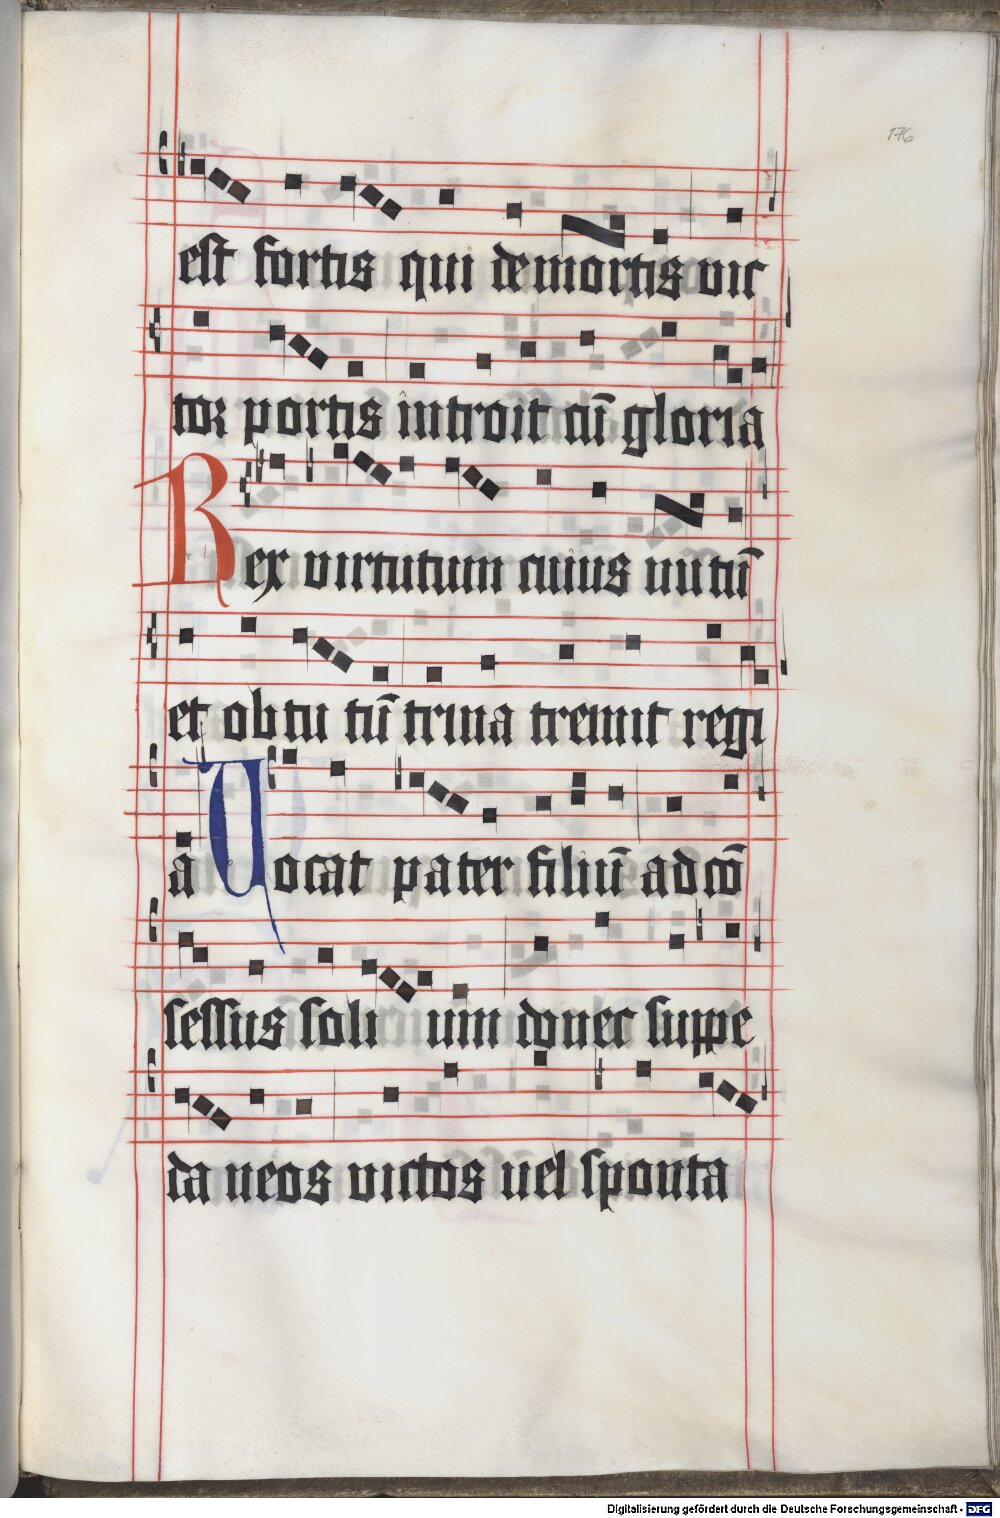 176
est fortis qui de mortis vic
tor portis introit cū gloria
Rex virtutum cuius nutū
et obtu tū trina tremit regi
a Vocat pater filiū ad cō
sessus soli um donec suppe
da neos victos uel sponta
Digitalisierung gefördert durch die Deutsche Forschungsgemeinschaft - DFG